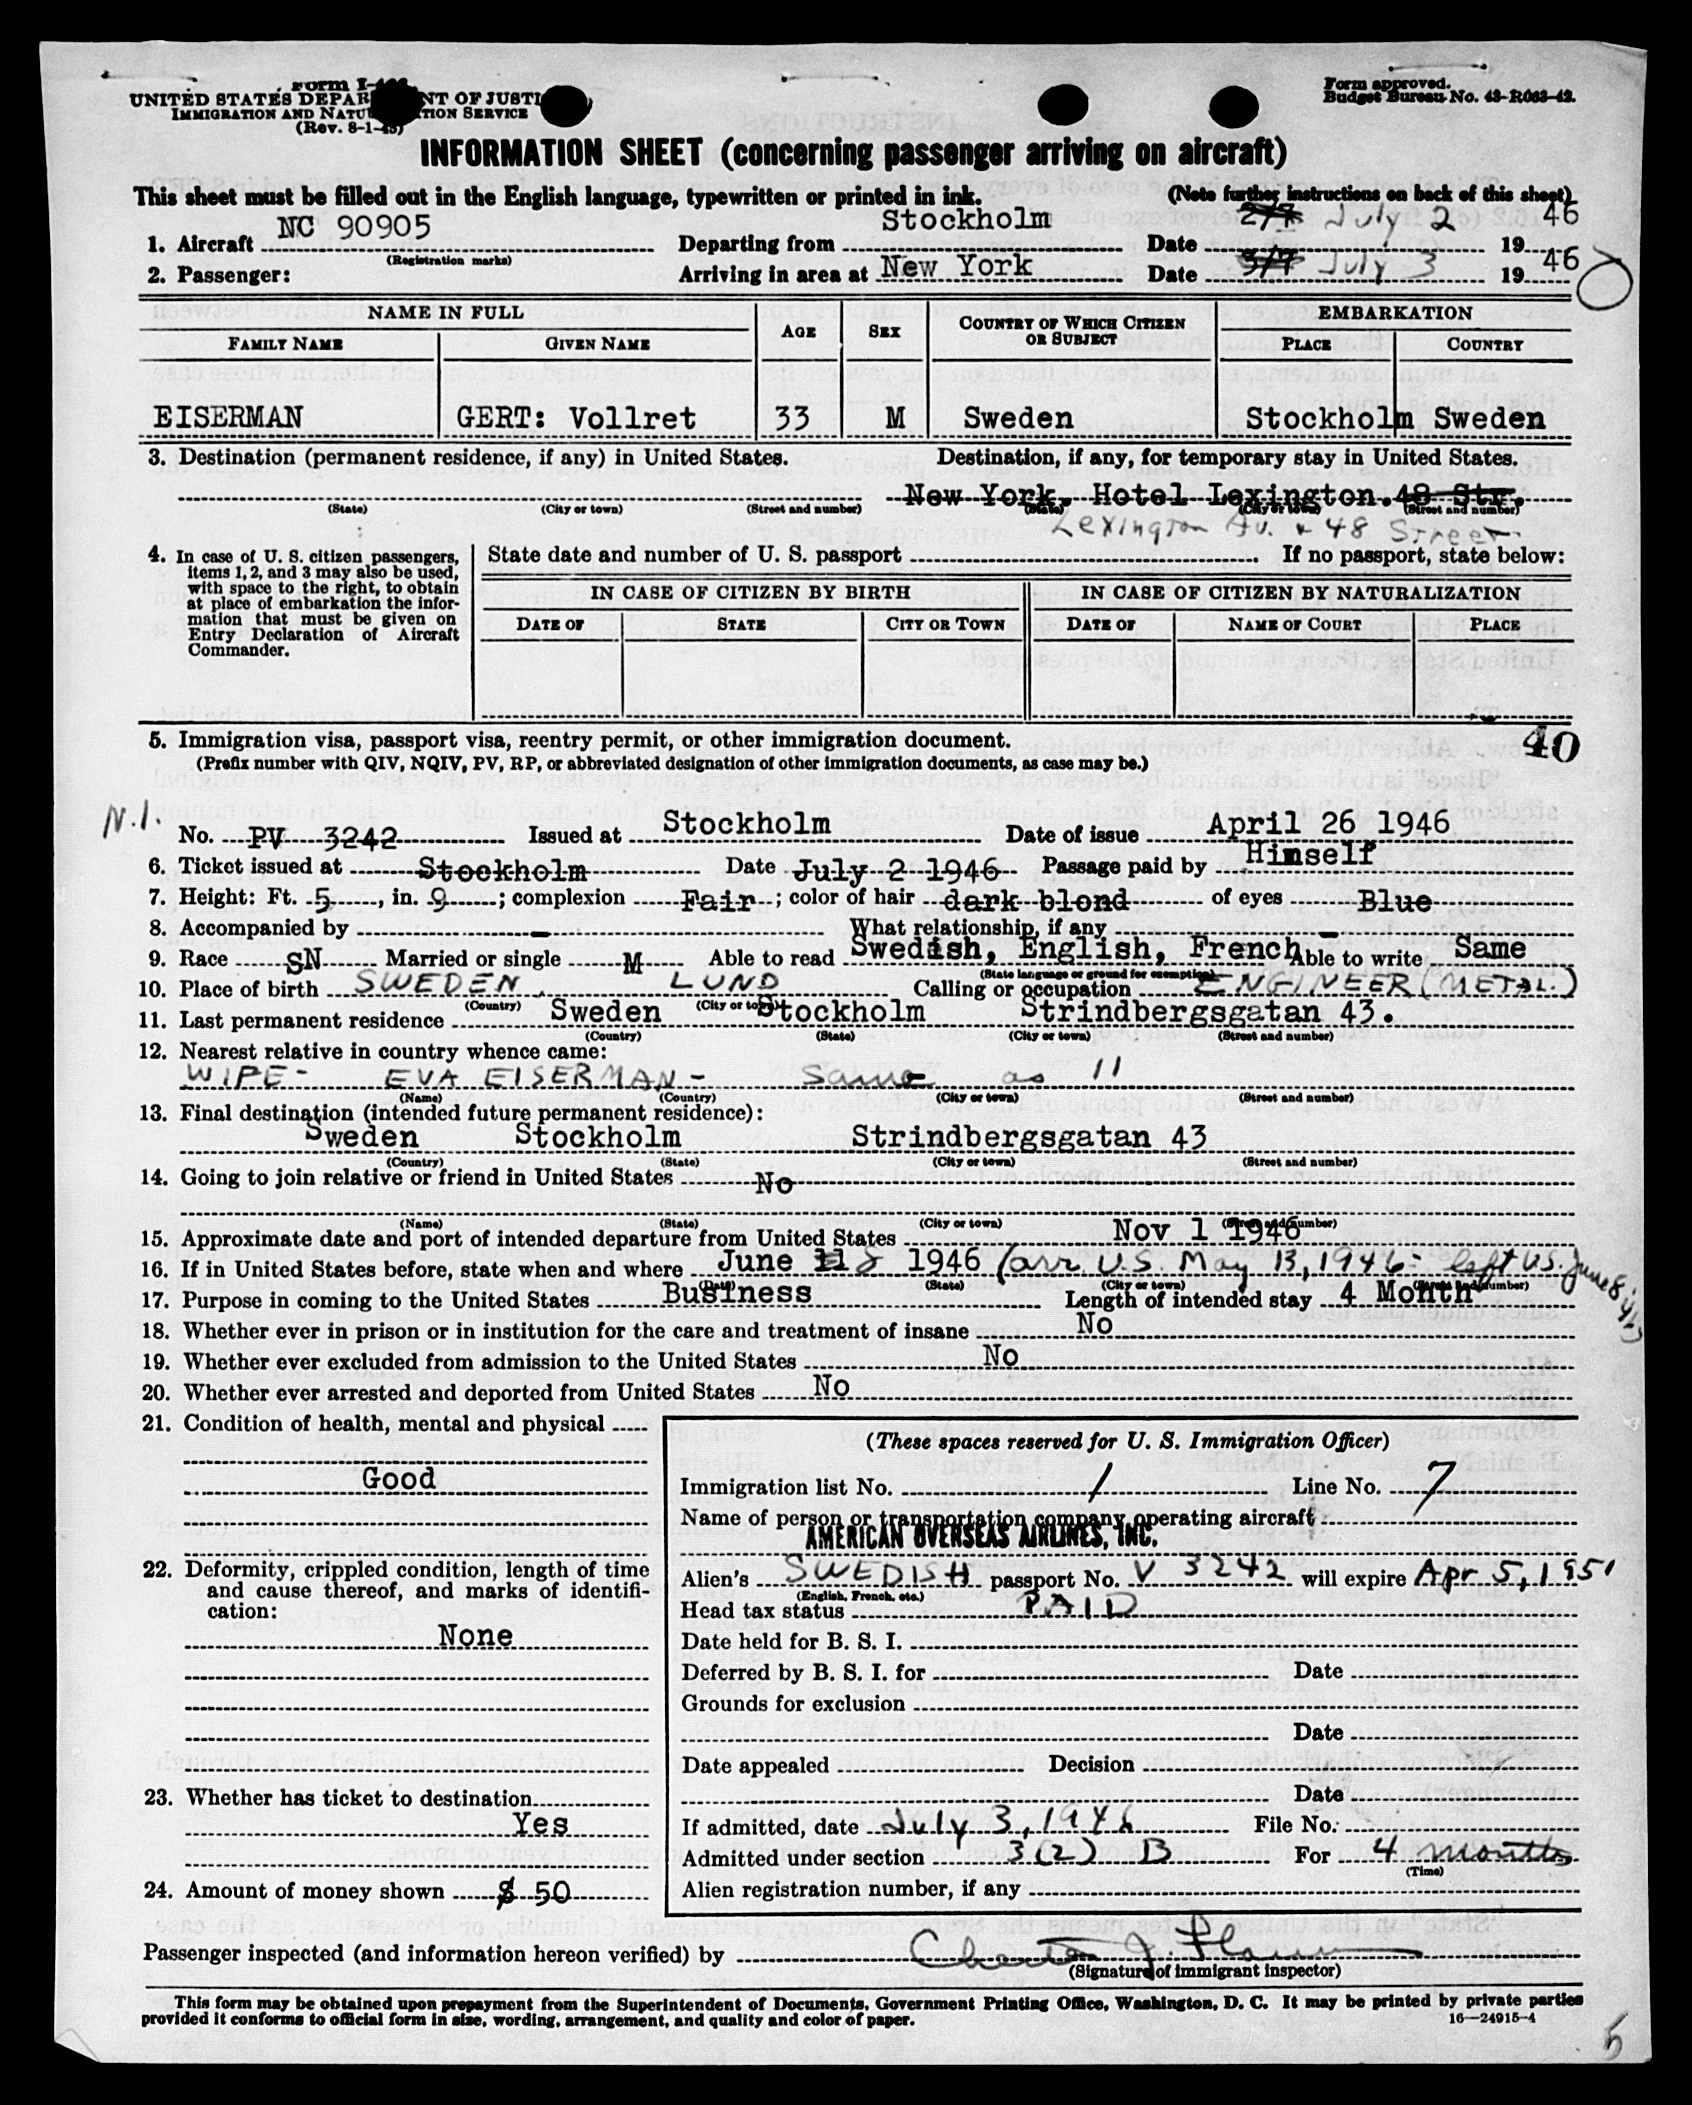 Form I-466
UNITED STATES DEPARTMENT OF JUSTICE
IMMIGRATION AND NATURALIZATION SERVICE
(Rev. 8-1-45)
Form approved.
Budget Bureau No. 43-R063-42.
INFORMATION SHEET (concerning passenger arriving on aircraft)
This sheet must be filled out in the English language, typewritten or printed in ink. (Note further instructions on back of this sheet)
1. Aircraft NC 90905 Departing from Stockholm Date 2/7 July 2 1946
(Registration marks)
2. Passenger: Arriving in area at New York Date 3/7 July 3 1946
NAME IN FULL AGE SEX COUNTRY OF WHICH CITIZEN OR SUBJECT EMBARKATION
FAMILY NAME GIVEN NAME PLACE COUNTRY
EISERMAN GERT: Vollret 33 M Sweden Stockholm Sweden
3. Destination (permanent residence, if any) in United States. Destination, if any, for temporary stay in United States.
New York, Hotel Lexington.48 Str.
(State) (City or town) (Street and number) (State) (City or town) (Street and number)
Lexington Av. & 48 Street
4. In case of U. S. citizen passengers, items 1, 2, and 3 may also be used, with space to the right, to obtain at place of embarkation the information that must be given on Entry Declaration of Aircraft Commander.
State date and number of U. S. passport If no passport, state below:
IN CASE OF CITIZEN BY BIRTH IN CASE OF CITIZEN BY NATURALIZATION
DATE OF STATE CITY OR TOWN DATE OF NAME OF COURT PLACE
5. Immigration visa, passport visa, reentry permit, or other immigration document. 40
(Prefix number with QIV, NQIV, PV, RP, or abbreviated designation of other immigration documents, as case may be.)
N.I.
No. PV 3242 Issued at Stockholm Date of issue April 26 1946
6. Ticket issued at Stockholm Date July 2 1946 Passage paid by Himself
7. Height: Ft. 5, in. 9; complexion Fair; color of hair dark blond of eyes Blue
8. Accompanied by - What relationship, if any -
9. Race SN Married or single M Able to read Swedish, English, French Able to write Same
(State language or ground for exemption)
10. Place of birth SWEDEN, LUND Calling or occupation ENGINEER (METAL.)
(Country) (City or town)
11. Last permanent residence Sweden Stockholm Strindbergsgatan 43.
(Country) (State) (City or town) (Street and number)
12. Nearest relative in country whence came:
WIFE- EVA EISERMAN- Same as 11
(Name) (Country) (City or town) (Street and number)
13. Final destination (intended future permanent residence):
Sweden Stockholm Strindbergsgatan 43
(Country) (State) (City or town) (Street and number)
14. Going to join relative or friend in United States No
(Name) (State) (City or town) (Street and number)
15. Approximate date and port of intended departure from United States Nov 1 1946
16. If in United States before, state when and where June 8 1946 (arr U.S. May 13, 1946 - left U.S. June 8,
(Date) (State) (City or town) (Street and number)
17. Purpose in coming to the United States Business Length of intended stay 4 Month
18. Whether ever in prison or in institution for the care and treatment of insane No
19. Whether ever excluded from admission to the United States No
20. Whether ever arrested and deported from United States No
21. Condition of health, mental and physical
Good
22. Deformity, crippled condition, length of time and cause thereof, and marks of identification:
None
23. Whether has ticket to destination
Yes
24. Amount of money shown $ 50
(These spaces reserved for U. S. Immigration Officer)
Immigration list No. 1 Line No. 7
Name of person or transportation company operating aircraft
AMERICAN OVERSEAS AIRLINES, INC.
Alien's SWEDISH passport No. V 3242 will expire Apr 5, 1951
(English, French, etc.)
Head tax status PAID
Date held for B. S. I.
Deferred by B. S. I. for Date
Grounds for exclusion
Date
Date appealed Decision
Date
If admitted, date July 3, 1946 File No.
Admitted under section 3(2) B For 4 months
(Time)
Alien registration number, if any
Passenger inspected (and information hereon verified) by
(Signature of immigrant inspector)
This form may be obtained upon prepayment from the Superintendent of Documents, Government Printing Office, Washington, D. C. It may be printed by private parties
provided it conforms to official form in size, wording, arrangement, and quality and color of paper. 16—24915-4
5